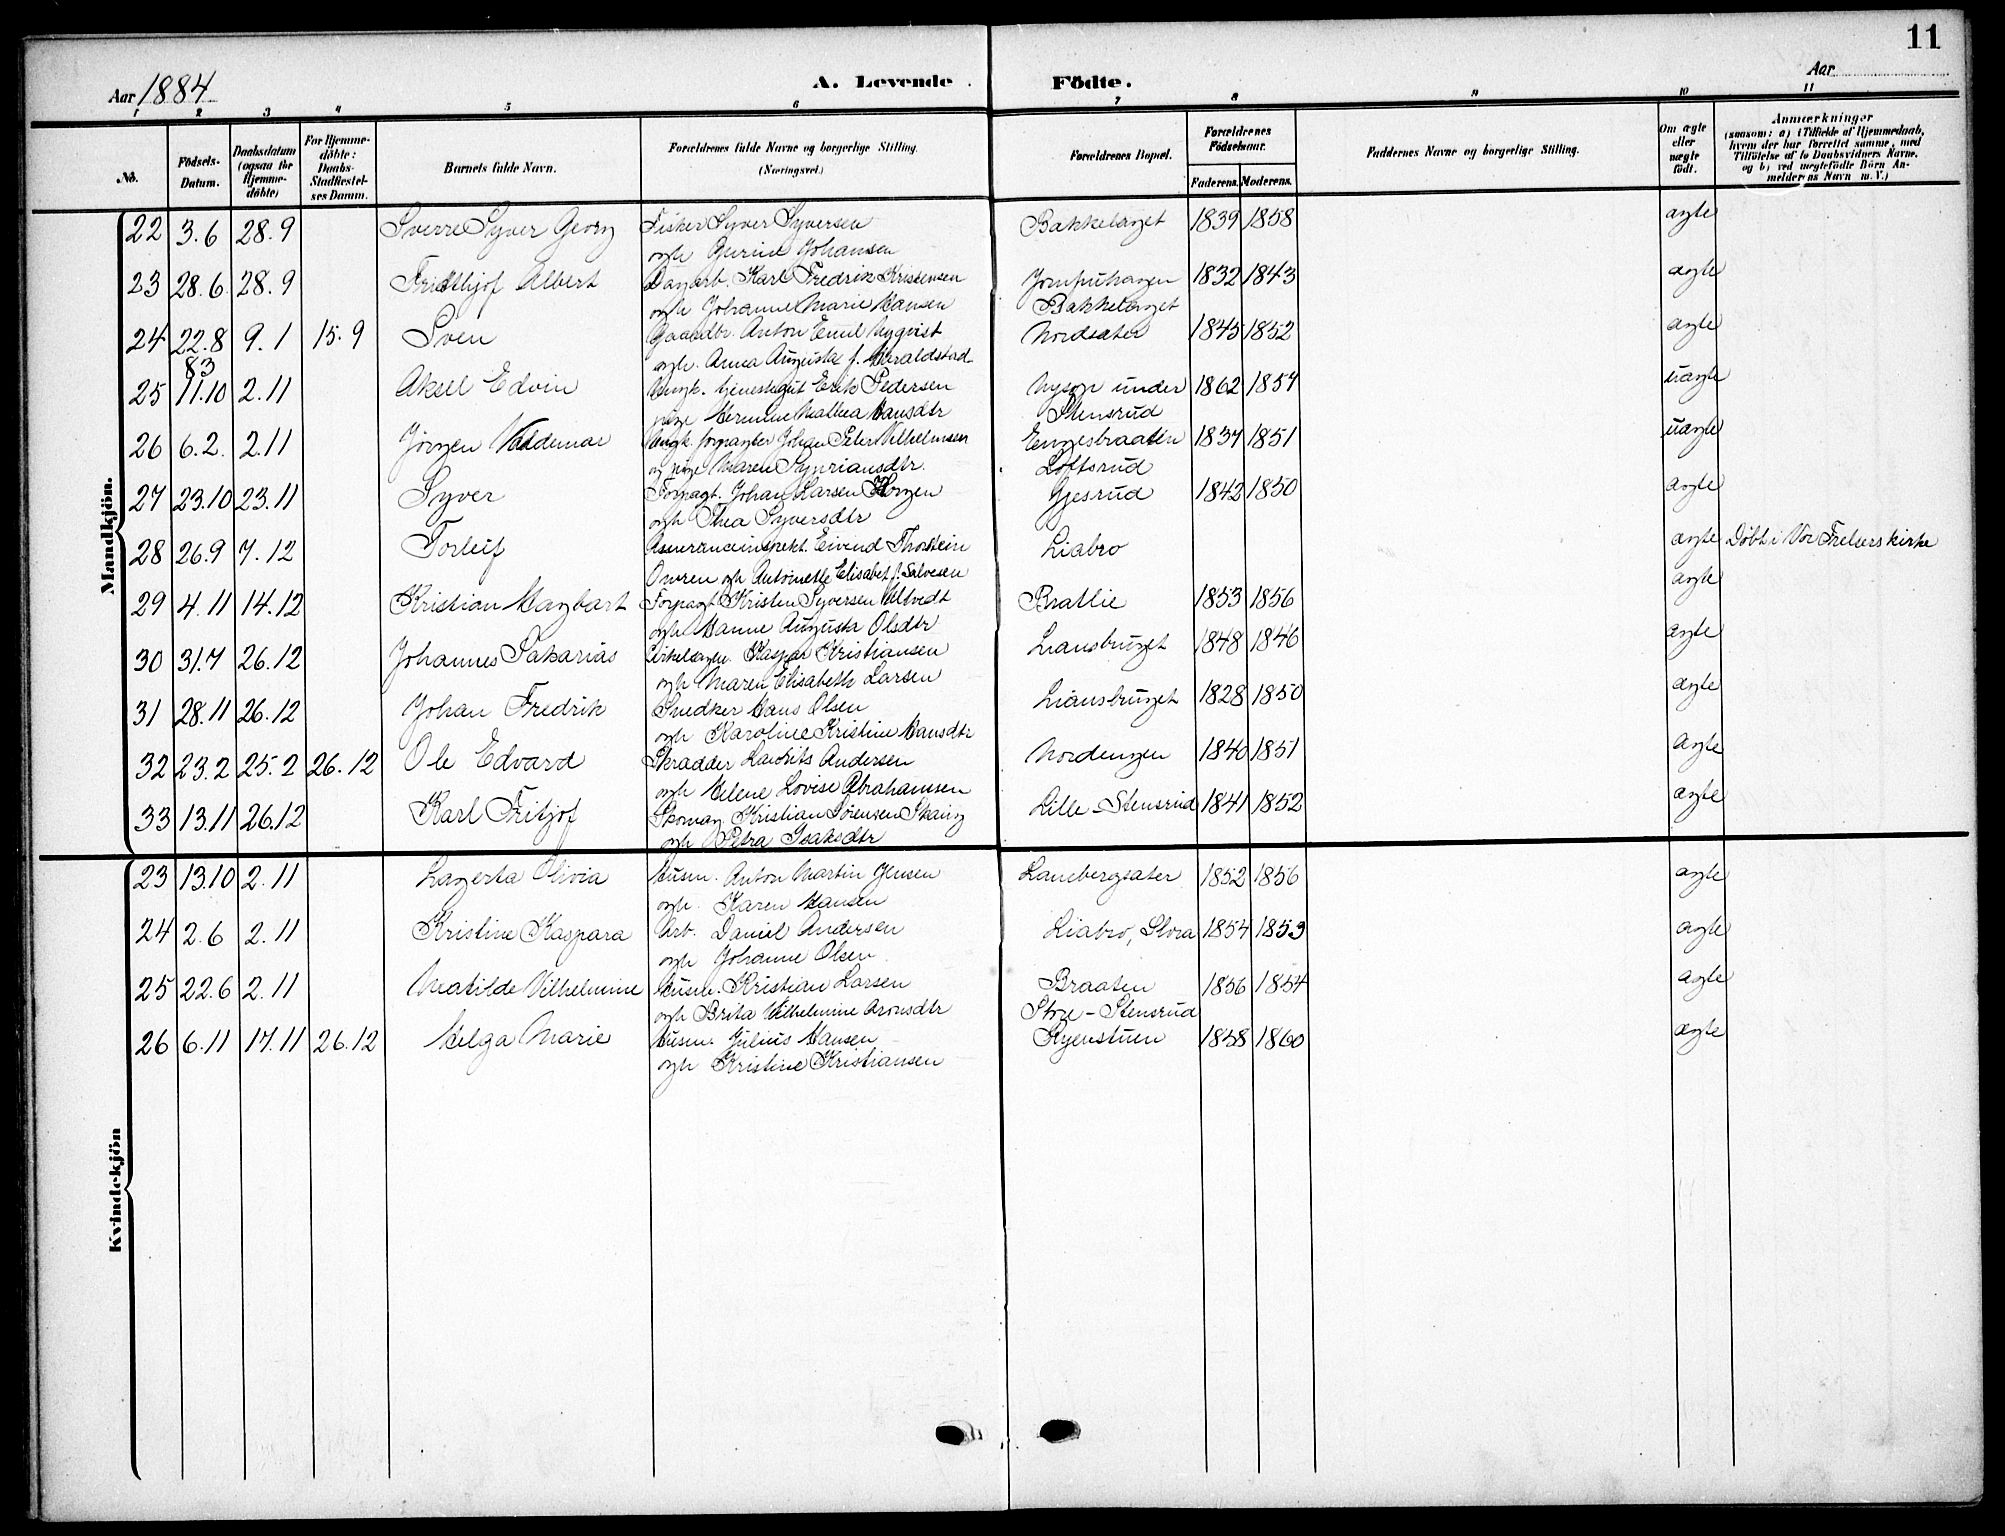 11
Aar 1884
A. Levende Födte.
Aar
1 2 3 4 5 6 7 8 9 10 11
No.
Födsels-Datum.
Daabsdatum (ogsaa for Hjemme-döbte)
For Hjemme-döbte: Daabs-Stadfæstel-ses Datum.
Barnets fulde Navn.
Forældrenes fulde Navne og borgerlige Stilling. (Næringsvei.)
Forældrenes Bopæl.
Forældrenes Födselsaar.
Faderens. Moderens.
Faddernes Navne og borgerlige Stilling.
Om ægte eller uægte födt.
Anmærkninger
(saasom: a) i Tilfælde af Hjemmedaab,
hvem der har forrettet samme, med
Tilföielse af to Daabsvidners Navne.
og b) ved uægtefödte Börn An-
melderens Navn m. V.)
Mandkjön.
22 3.6 28.9 Sverre Syver Georg Fisker Syver Syversen Bakkelaget 1839 1858 ægte
ogh Gurine Johansen
23 28.6 28.9 Fridthjof Albert Dagarb. Karl Fredrik Kristensen Jomfruhagen 1832 1843 ægte
ogh Johanne Marie Hansen Bakkelaget
24 22.8 9.1 15.9 Sven Gaardbr. Anton Emil Nyqvist Nordsæter 1845 1852 ægte
83 ogh. Anna Augusta f. Haraldstad
25 11.10 2.11 Aksel Edvin Ungk. tjenestegut Erik Pedersen Nysøp under 1862 1857 uægte
pige Hermine Mathea Hansdtr Stensrud
26 6.2. 2.11 Jörgen Valdemar Ungk. forpagter Johan Peter Vilhelmsen Engesbraaten 1837 1851 uægte
og pige Maren Sypriansdtr. Loftsrud
27 23.10 23.11 Syver Forpagt. Johan Larsen Gjesrud 1842 1850 ægte
ogh Thea Syversdtr
28 26.9 7.12 Torleif Assuranceinspekt. Eivind Thorstein Liabro ægte Döbt i Vor Frelsers kirke
Omren ogh Antoinette Elisabet f. Salvesen
29 4.11 14.12 Kristian Hagbart Forpagt Kristen Syversen Altvedt Brattlie 1853 1856 ægte
ogh Hanne Augusta Olsdtr
30 31.7 26.12 Johannes Sakarias Kaspar Kristiansen Liansbruget 1848 1846 ægte
ogh Maren Elisabeth Larsen
31 28.11 26.12 Johan Fredrik Snedker Hans Olsen Liansbruget 1828 1850 ægte
ogh Karoline Kristine Hansdtr
32 23.2 25.2 26.12 Ole Edvard Skrædder Lauritz Andersen Nordengen 1840 1851 ægte
ogh Helene Lovise Abrahamsen
33 13.11 26.12 Karl Fritjof Skomag Kristian Sörensen Skaug Lille-Stensrud 1841 1852 ægte
ogh Petra Isaksdtr
Kvindekjön
23 13.10 2.11 Lagerta Olivia Husm. Anton Martin Jensen Lanebergsæter 1852 1856 ægte
ogh. Karen Hansen
24 2.6 2.11 Kristine Kaspara Arb. Daniel Andersen Liabro, Stora 1854 1853 ægte
ogh Johanne Olsen
25 22.6 2.11 Matilde Vilhelmine Husm. Kristian Larsen Braaten 1856 1854 ægte
ogh Brita Vilhelmine Aronsdtr Store-Stensrud
26 6.11 17.11 26.12 Helga Marie Husm. Julius Hansen Ryenstuen 1858 1860 ægte
ogh Kristine Kristiansen